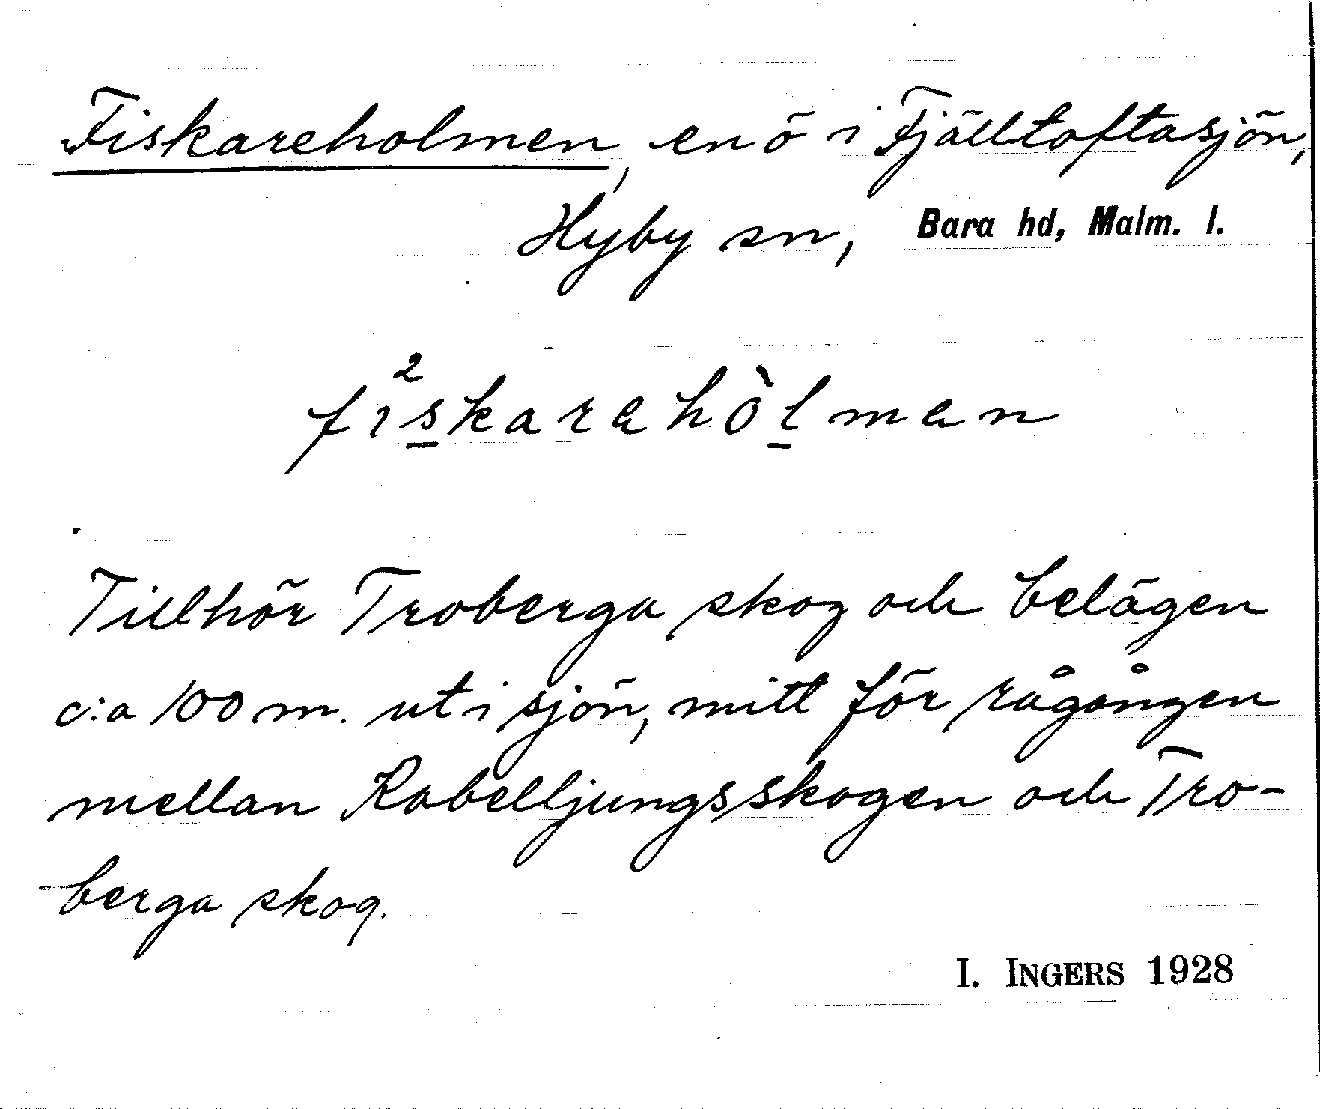 Fiskareholmen, en ö i Fjälltoftasjön,
Hyby sn, Bara hd, Malm. l.
fi²s̲karahòl̲man
Tillhör Troberga skog och belägen
c:a 100 m. ut i sjön, mitt för rågången
mellan Rabelljungsskogen och Tro-
berga skog.
I. INGERS 1928